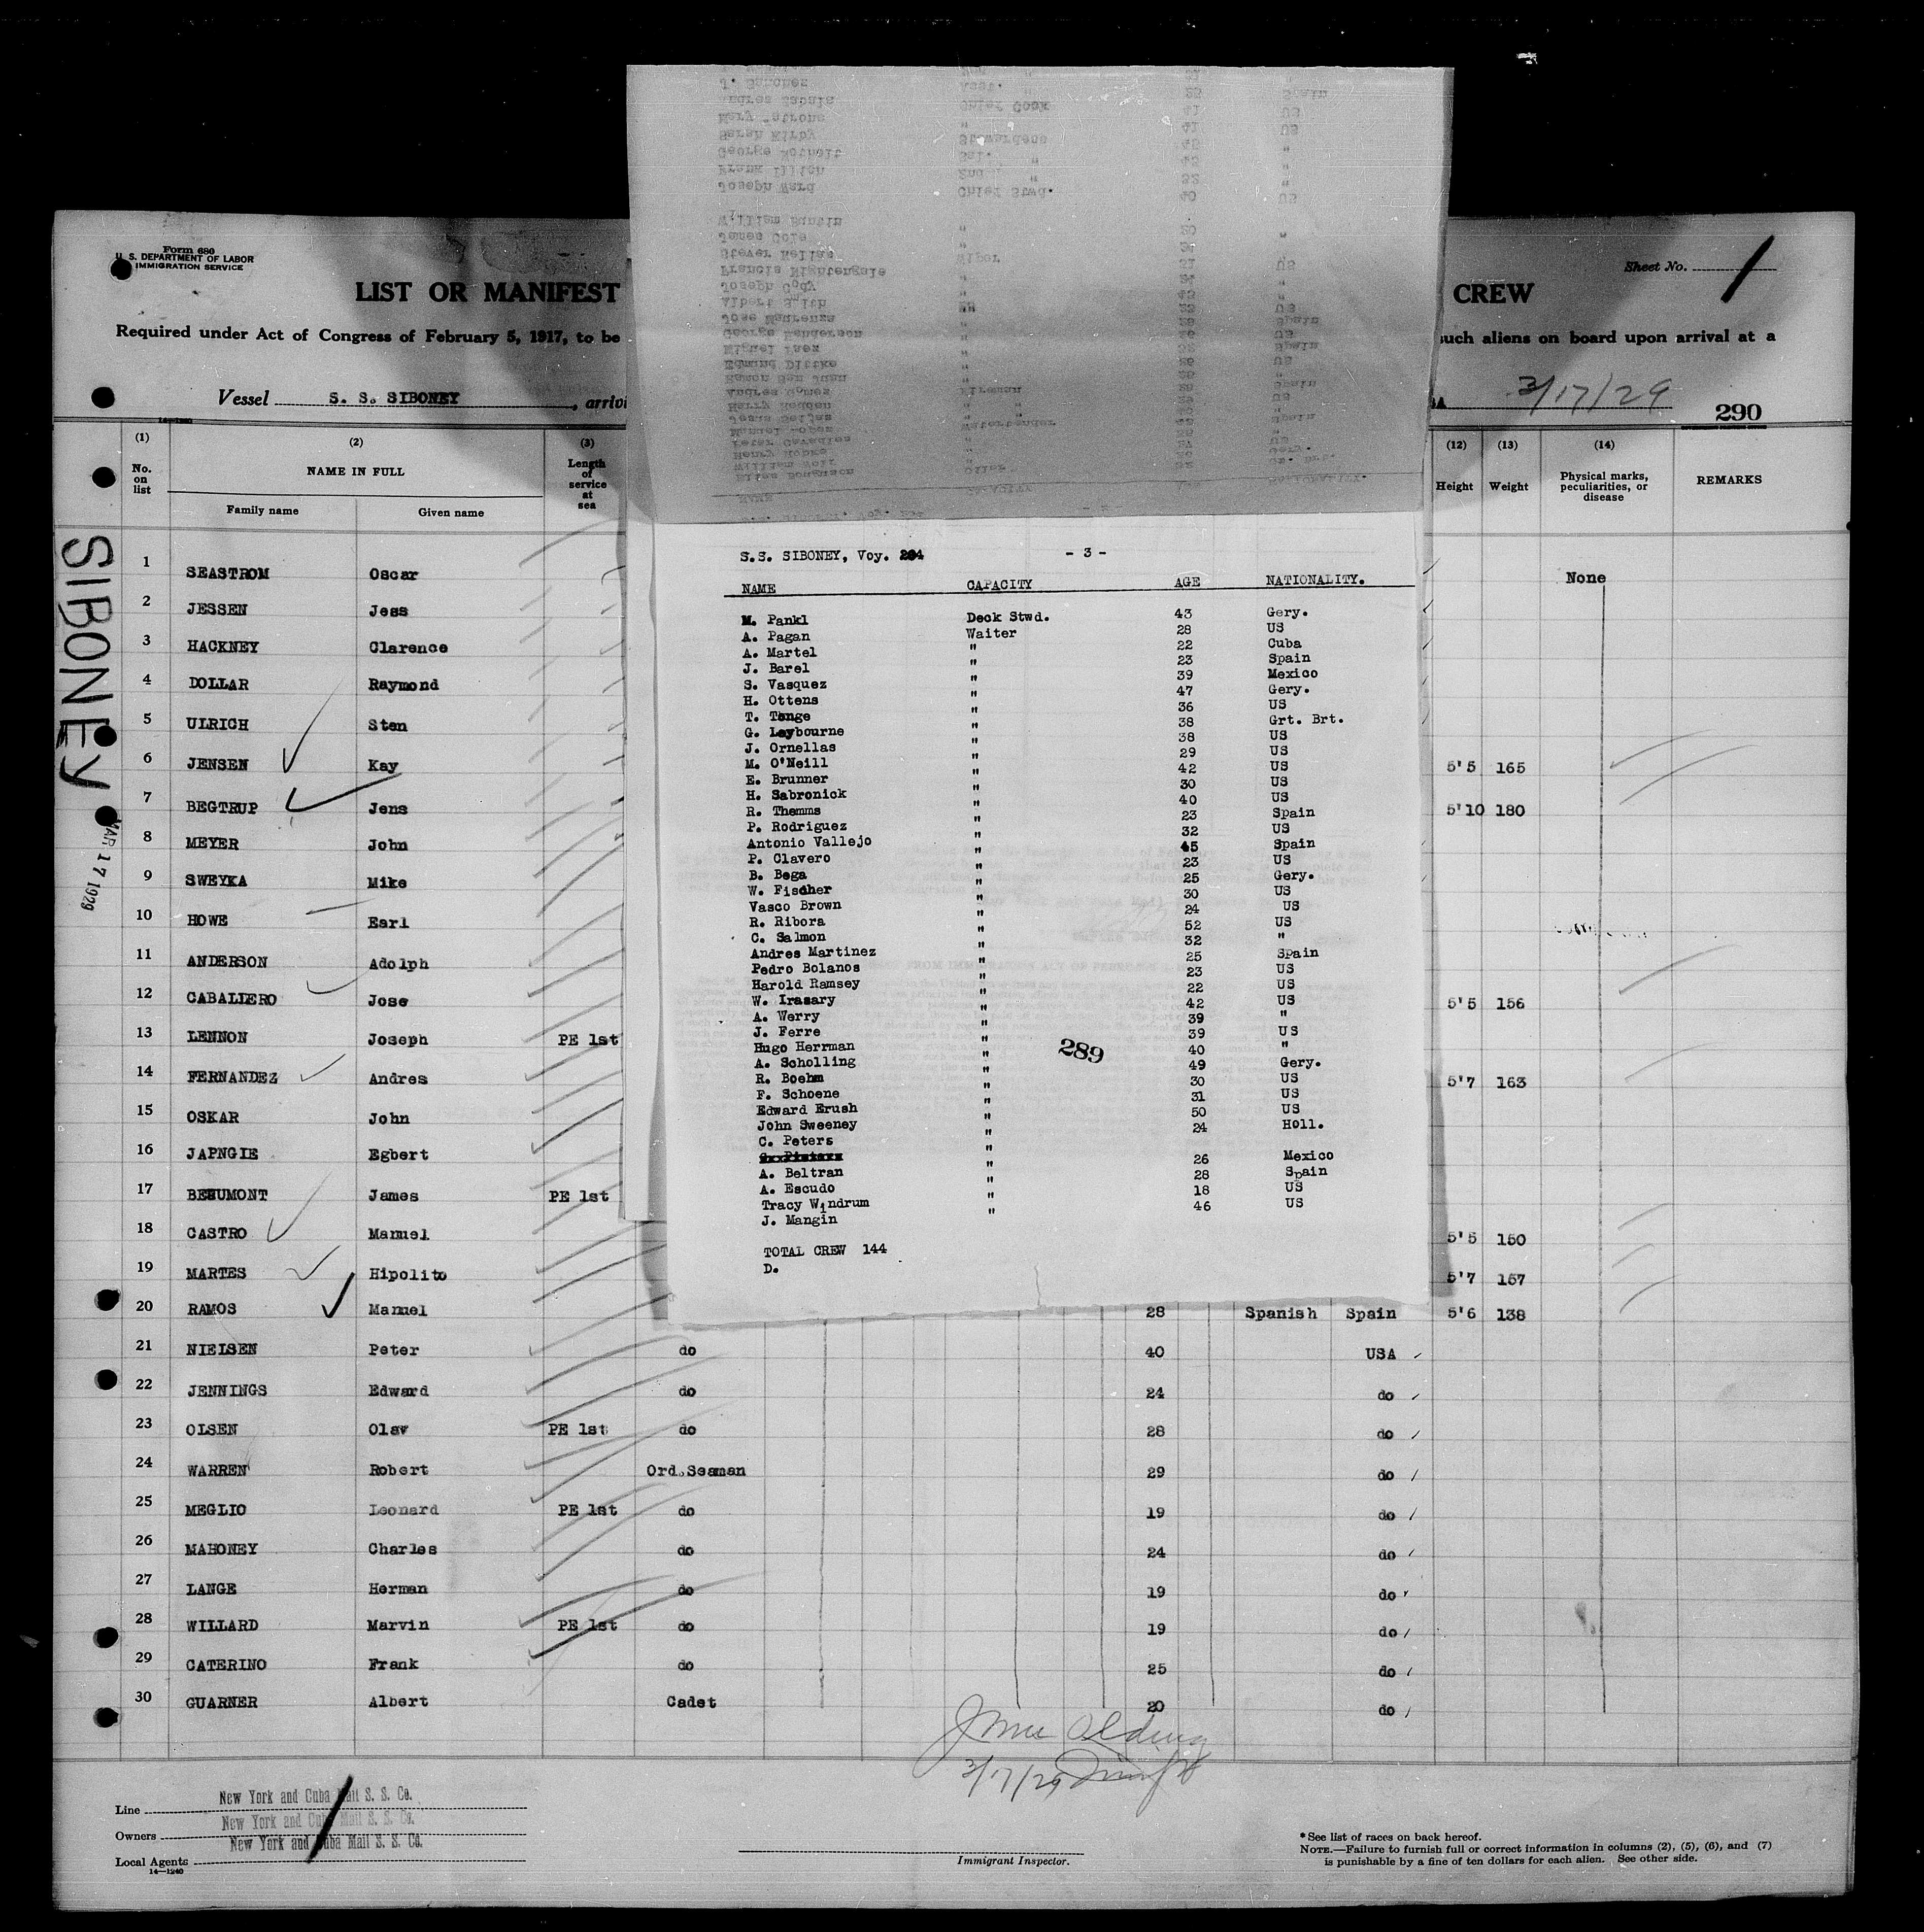 Form 680
U. S. DEPARTMENT OF LABOR
IMMIGRATION SERVICE
Sheet No. 1
LIST OR MANIFEST CREW
Required under Act of Congress of February 5, 1917, to be such aliens on board upon arrival at a
Vessel S. S. SIBONEY, arrivi 3/17/29
290
J. Sanchez Asst. 25 Spain
Andres Zabala Chief Cook 41 US
Mary Strong " 41 US
Sarah Kirby Stewardess 45 "
George Nothelt
Frank Tilton 2nd. " 32 "
Joseph Ward Chief Stwd. 40 US
William Bantin
James Cole
Stever Kellas Wiper 31 US
Francis Nightengale
Joseph Cody
Albert Smith
George Henderson
Edmund Dittke
Ramon San Juan
Andres Gomez Fireman Spain
Harry Hedden
Manuel Lopez Watertender
(1) (2) (3) (12) (13) (14)
No. on list NAME IN FULL Length of service at sea Height Weight Physical marks, peculiarities, or disease REMARKS
Family name Given name
SIBONEY
MAR 17 1929
1 SEASTROM Oscar None
2 JESSEN Jess
3 HACKNEY Clarence
4 DOLLAR Raymond
5 ULRICH Sten
6 JENSEN Kay 5'5 165
7 BEGTRUP Jens 5'10 180
8 MEYER John
9 SWEYKA Mike
10 HOWE Earl
11 ANDERSON Adolph
12 CABALLERO Jose 5'5 156
13 LENNON Joseph PE 1st
14 FERNANDEZ Andres 5'7 163
15 OSKAR John
16 JAPNGIE Egbert
17 BEAUMONT James PE 1st
18 CASTRO Manuel 5'5 150
19 MARTES Hipolito 5'7 157
20 RAMOS Manuel 28 Spanish Spain 5'6 138
21 NIELSEN Peter do 40 USA
22 JENNINGS Edward do 24 do
23 OLSEN Olav PE 1st do 28 do
24 WARREN Robert Ord.Seaman 29 do
25 MEGLIO Leonard PE 1st do 19 do
26 MAHONEY Charles do 24 do
27 LANGE Herman do 19 do
28 WILLARD Marvin PE 1st do 19 do
29 CATERINO Frank do 25 do
30 GUARNER Albert Cadet 20 do
S.S. SIBONEY, Voy. 204 - 3 -
NAME CAPACITY AGE NATIONALITY.
M. Pankl Deck Stwd. 43 Gery.
A. Pagan Waiter 28 US
A. Martel " 22 Cuba
J. Barel " 23 Spain
S. Vasquez " 39 Mexico
H. Ottens " 47 Gery.
T. Tonge " 36 US
G. Leybourne " 38 Grt. Brt.
J. Ornellas " 38 US
M. O'Neill " 29 US
E. Brunner " 42 US
H. Sabronick " 30 US
R. Themms " 40 US
P. Rodriguez " 23 Spain
Antonio Vallejo " 32 US
P. Clavero " 45 Spain
B. Bega " 23 US
W. Fischer " 25 Gery.
Vasco Brown " 30 US
R. Ribora " 24 US
C. Salmon " 52 US
Andres Martinez " 32 "
Pedro Bolanos " 25 Spain
Harold Ramsey " 23 US
W. Irasary " 22 US
A. Werry " 42 US
J. Ferre " 39 "
Hugo Herrman " 39 US
A. Scholling " 40 "
R. Boehm " 49 Gery.
F. Schoene " 30 US
Edward Erush " 31 US
John Sweeney " 50 US
C. Peters " 24 Holl.
A. Beltran " 26 Mexico
A. Escudo " 28 Spain
Tracy Windrum " 18 US
J. Mangin " 46 US
289
TOTAL CREW 144
D.
3/17/29
Line New York and Cuba Mail S. S. Co.
Owners New York and Cuba Mail S. S. Co.
Local Agents New York and Cuba Mail S. S. Co.
14—1240
Immigrant Inspector.
* See list of races on back hereof.
NOTE.—Failure to furnish full or correct information in columns (2), (5), (6), and (7)
is punishable by a fine of ten dollars for each alien. See other side.